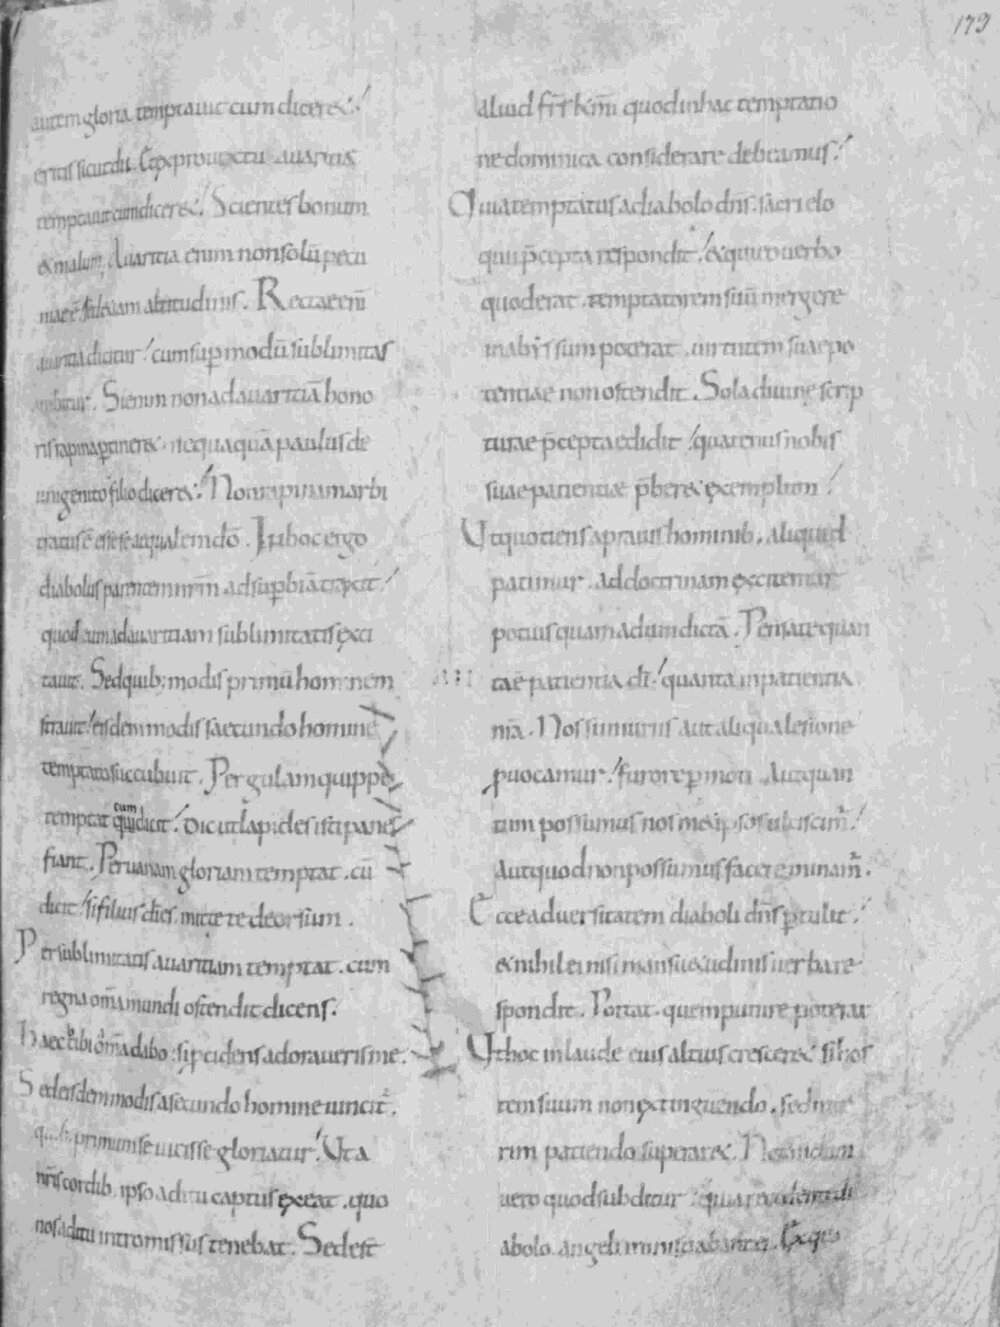 179
autem gloria temptauit cum diceret:
eritis sicut dii. Et ex prouectu auaritiæ
temptauit cum diceret. Scientes bonum
& malum. Auaritia enim non solū pecu
niae ē. sed etiam altitudinis. Recte enī
auaritia dicitur. cum sup modū sublimitas
ambitur. Si enim non ad auaritiā hono
ris rapina ptineret. nequaquā paulus de
unigenito filio diceret. Non rapinam arbi
tratus ē esse se aequalem dō. In hoc ergo
diabolus parentem nr̄m ad supbiā traxit.
quod eum ad auaritiam sublimitatis exci
tauit. Sed quib; modis primū hominem
strauit. eisdem modis saecundo homine
temptato succubuit. Per gulam quippe
temptat cum dicit. Dic ut lapides isti panes
fiant. Per uanam gloriam temptat. cū
dicit. si filius dī es. mitte te deorsum.
Per sublimitatis auaritiam temptat. cum
regna om̄a mundi ostendit dicens.
Haec tibi om̄a dabo. si pcidens adoraueris me.
Sed eisdem modis a secundo homine uincit᷒.
primum se uicisse gloriatur. Ut a
nr̄is cordib. ipso aditu captus exeat. quo
nos aditu intromissus tenebat. Sed est
aliud fr̄s km̄i quod in hac temptatio
ne dominica considerare debeamus.
Quia temptatus a diabolo dn̄s. sacri elo
quii p̄cepta respondit. & qui eo uerbo
quod erat. temptatorem suū mergere
in abissum poterat. uirtutem suae po
tentiae non ostendit. Sola diuinę scrip
turae p̄cepta edidit. quatenus nobis
suae patientiae p̄beret exemplum.
Ut quotiens a prauis hominib. aliquid
patimur. ad doctrinam excitemur
potius quam ad uindictā. Pensate quan
ta ē patientia dī. quanta inpatientia
nr̄a. Nos si iniuriis aut aliqua lesione
puocamur. furore pmoti. Aut quan
tum possumus nosmet ipsos ulciscim᷒.
Aut quod non possumus facere minam᷒.
Ecce aduersitatem diaboli dn̄s ptulit.
& nihil ei nisi mansuetudinis uerba re
spondit. Portat. quem punire poterat
Ut hoc in laude eius altius cresceret si hos
tem suum non extinguendo. sed
rim patiendo superaret. Notandum
uero quod subditur. quia recedente di
abolo angeli ministrabant ei. Ex quo